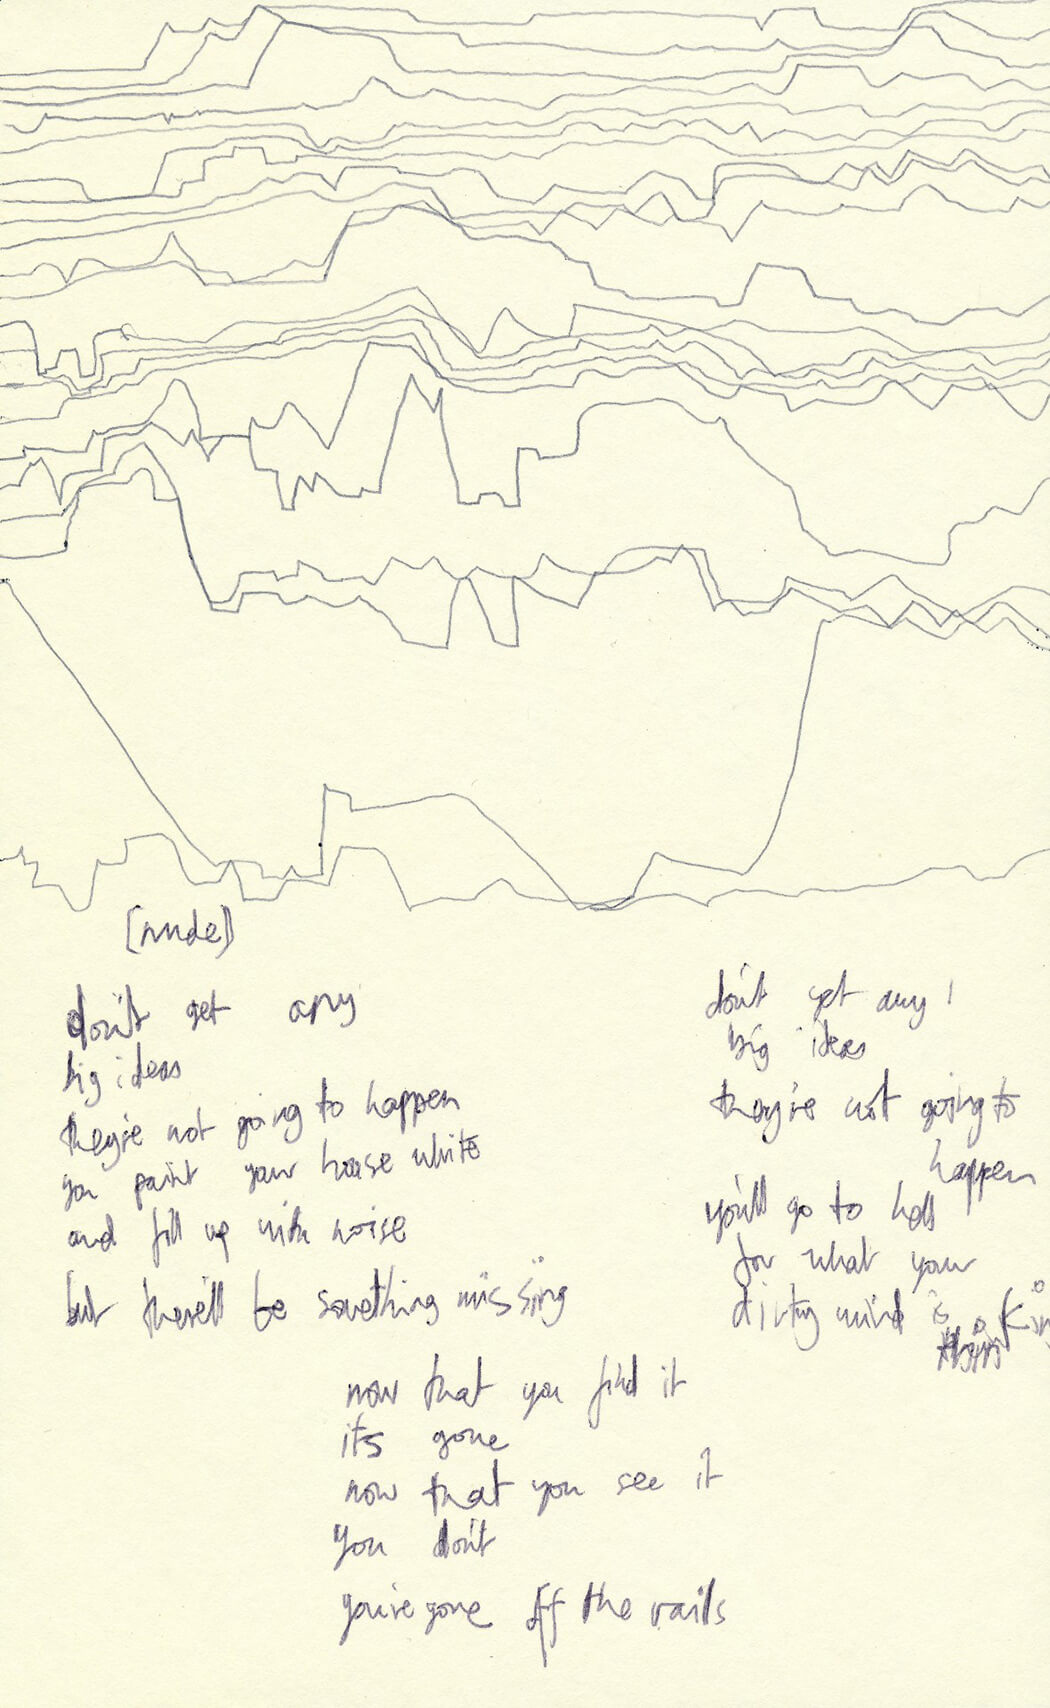 [nude]
don't get any
big ideas
they're not going to happen
you paint your house white
and fill up with noise
but there'll be something missing
don't get any
big ideas
they're not going to
happen
you'll go to hell
for what your
dirty mind is
thinking
now that you find it
its gone
now that you see it
you don't
you're gone off the rails